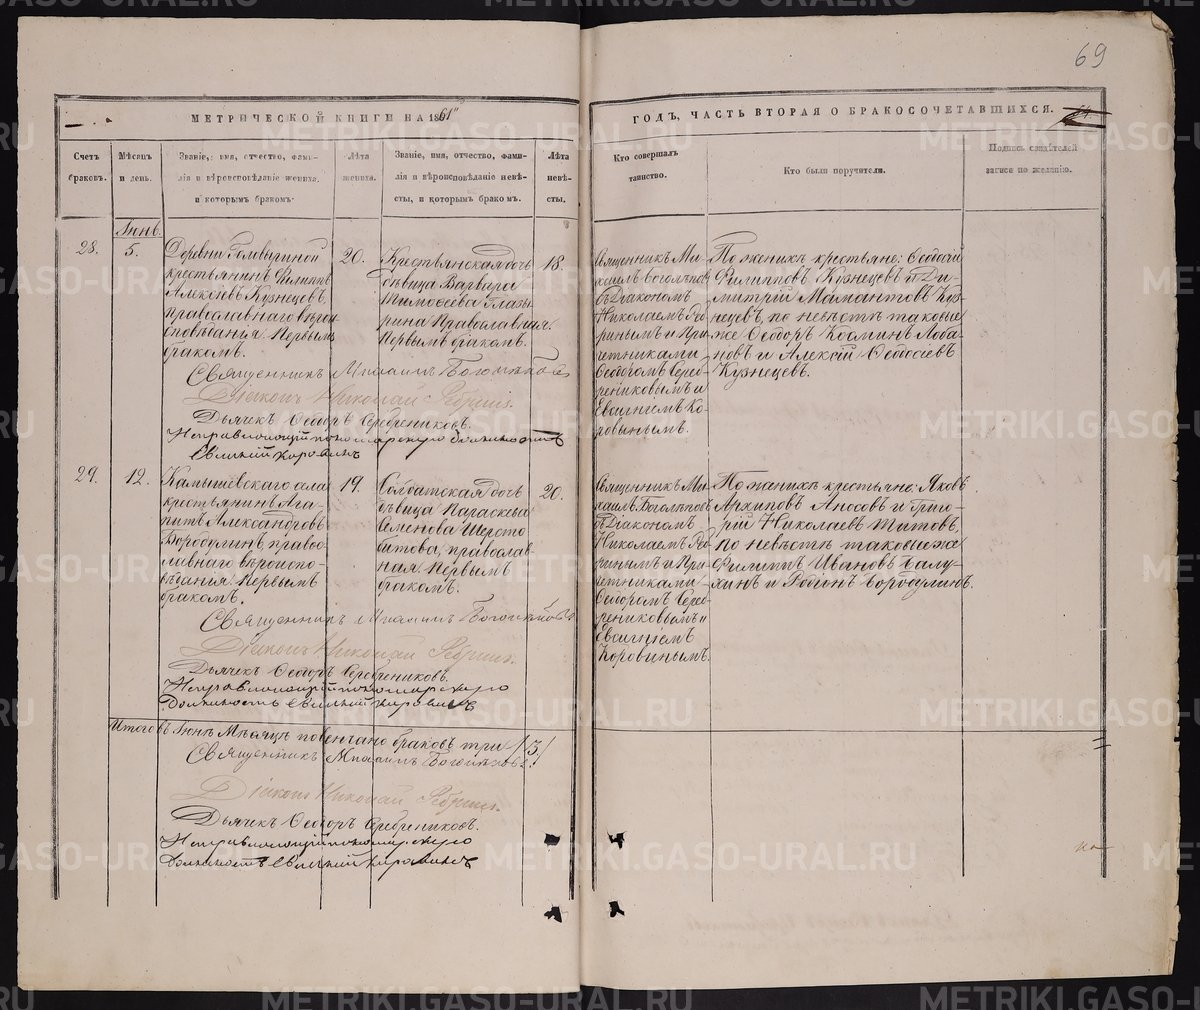 69
МЕТРИЧЕСКОЙ КНИГИ НА 1861й
ГОДЪ, ЧАСТЬ ВТОРАЯ О БРАКОСОЧЕТАВШИХСЯ.
Счетъ браковъ.
Мѣсяцъ и день.
Званіе, имя, отчество, фами-
лія и вѣроисповѣданіе жениха,
и которымъ бракомъ.
Лѣта жениха.
Званіе, имя, отчество, фами-
лія и вѣроисповѣданіе невѣ-
сты, и которымъ бракомъ.
Лѣта невѣ-
сты.
Кто совершалъ
таинство.
Кто были поручители.
Подпись свидѣтелей
записи по желанію.
Іюнь.
28.
5.
Деревни
крестьянинъ Филиппъ
Алексѣевъ Кузнецовъ,
православнаго вѣро-
исповѣданія. Первымъ
бракомъ.
20.
Крестьянская дочь
дѣвица Варвара
Тимофеева Глазы-
рина Православная.
Первымъ бракомъ.
18.
Священникъ Ми-
хаилъ Боголѣповъ
съ Діакономъ
Николаемъ Ре-
бринымъ и При-
четниками
Ѳеодоромъ Сереб-
рениковымъ и
Евгеніемъ Ко-
ровинымъ.
По женихѣ крестьяне: Ѳеодосій
Филипповъ Кузнецовъ и Ди-
митрій Мамантовъ Куз-
нецовъ, по невѣстѣ таковые
же Ѳеодоръ Косминъ Лоба-
новъ и Алексій Ѳеодосѣевъ
Кузнецовъ.
Священникъ Михаилъ Боголѣповъ
Діаконъ Николай Ребринъ.
Дьячекъ Ѳеодоръ Серебрениковъ.
Исправляющій пономарскую должность
Евгеній Коровинъ
29.
12.
Камышевскаго села
крестьянинъ Ага-
питъ Александровъ
Бородулинъ, право-
славнаго вѣроиспо-
вѣданія. Первымъ
бракомъ.
19.
Солдатская дочь
дѣвица Параскева
Семенова Шерсто-
битова, православ-
ная. Первымъ
бракомъ.
20.
Священникъ Ми-
хаилъ Боголѣповъ
съ Діакономъ
Николаемъ Ре-
бринымъ и При-
четниками
Ѳеодоромъ Сереб-
рениковымъ и
Евгеніемъ
Коровинымъ.
По женихѣ крестьяне: Яковъ
Архиповъ Аносовъ и Григо-
рій Николаевъ Титовъ,
по невѣстѣ таковые же
Филиппъ Ивановъ Балу-
хинъ и Родіонъ Бородулинъ.
Священникъ Михаилъ Боголѣповъ
Діаконъ Николай Ребринъ.
Дьячекъ Ѳеодоръ Серебрениковъ.
Исправляющій пономарскую
должность Евгеній Коровинъ
Итого въ Іюнѣ Мѣсяцѣ повенчано браковъ три /3/
Священникъ Михаилъ Боголѣповъ.
Діаконъ Николай Ребринъ.
Дьячекъ Ѳеодоръ Серебрениковъ.
Исправляющій пономарскую
Должность Евгеній Коровинъ
METRIKI.GASO-URAL.RU